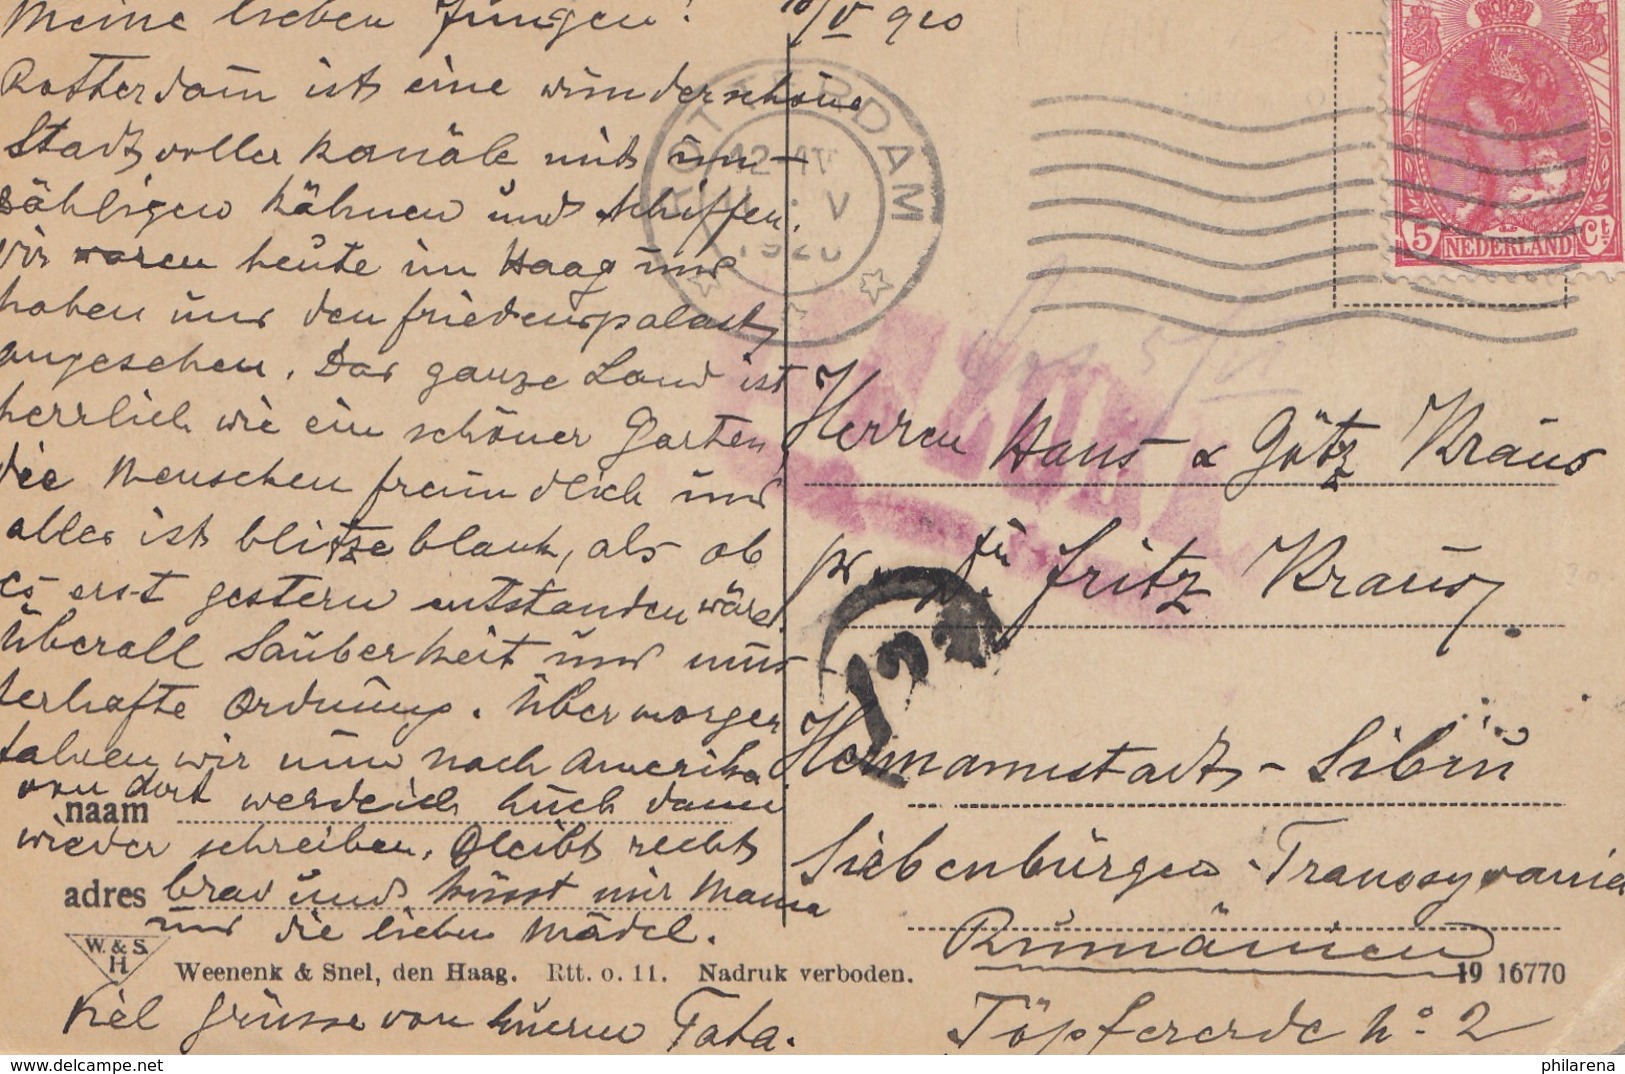 Meine lieben Jungen! 10/V 920
Rotterdam ist eine wunderschöne
Stadt voller Kanäle mit un-
zähligen Kähnen und Schiffen.
Wir waren heute im Haag und
haben uns den Friedenspalast
angesehen. Das ganze Land ist
herrlich wie ein schöner Garten
die Menschen freundlich und
alles ist blitze blank, als ob
es erst gestern entstanden wäre!
Überall Sauberkeit und mus-
terhafte Ordnung. Übermorgen
fahren wir nun nach Amerika
von dort werde ich Euch dann
wieder schreiben. Bleibt recht
brav und küsst mir Mama
und die lieben Mädel.
Viel Grüsse von Eurem Tata.
naam
adres
W. & S.
H
Weenenk & Snel, den Haag. Rtt. o. 11. Nadruk verboden.
ROTTERDAM
V
1920
5
NEDERLAND
Ct
Herren Hans & Götz Kraus
pr. Fritz Kraus,
Hermannstadt - Sibiu
Siebenbürgen - Transsylvania
Rumänien
19 16770
Töpfererde No 2
philarena